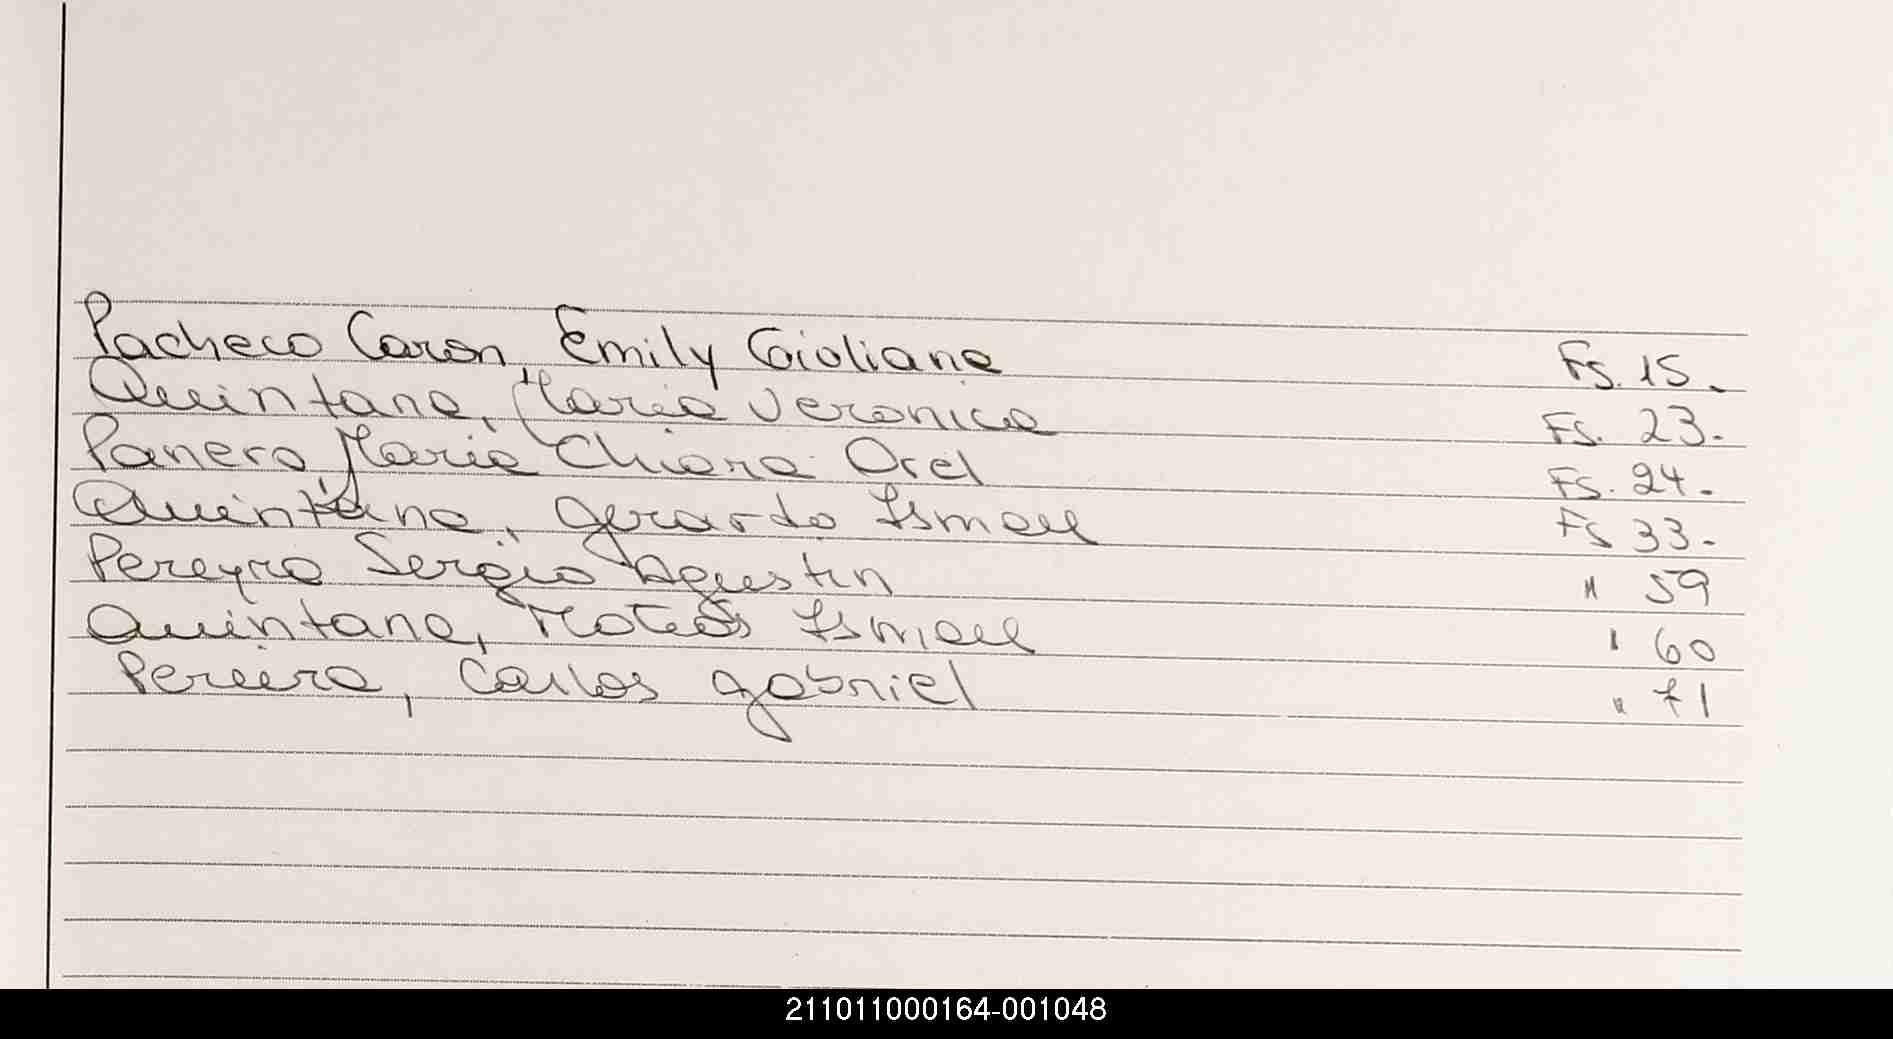 Pacheco Caron, Emily Gioliana Fs. 15.
Quintana, Maria Veronica Fs. 23.
Panero Maria Chiara Orel Fs. 24.
Quintana, Gerardo Ismael Fs 33.
Pereyra Sergio Agustin " 59
Quintana, Mateos Ismael " 60
Pereira, Carlos Gabriel " 71
211011000164-001048